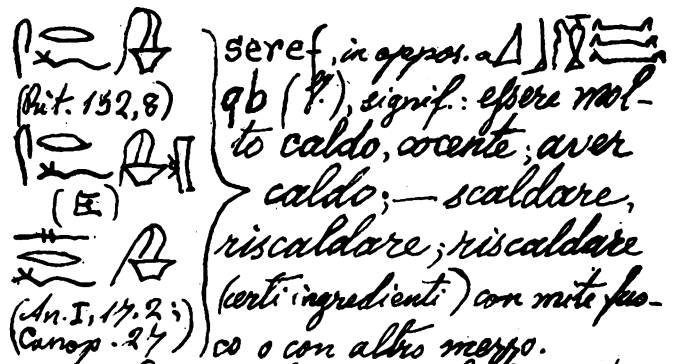 𓋴𓂋𓆑𓊮
(Rit. 152,8)
𓋴𓂋𓆑𓊮
(E)
𓊃𓂋𓆑𓊮
(An. I, 17.2;
Canop. 27)
seref, in oppos. a 𓈎𓃀𓈗
qb ( ), signif.: eſsere mol-
to caldo, cocente; aver
caldo; — scaldare,
riscaldare; riscaldare
(certi ingredienti) con mite fuo-
co o con altro mezzo.